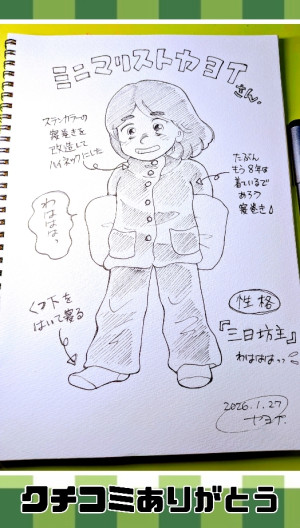 ミニマリストヤヨイ
さん.
ステンカラーの
寝巻きを
改造して
ハイネックにした
たぶん
もう8年は
着ているで
あろう
寝巻き♪
わははは
くつ下を
はいて寝る
性格
『三日坊主』
わははは〜っ
2026.1.27
ヤヨイ.
クチコミありがとう